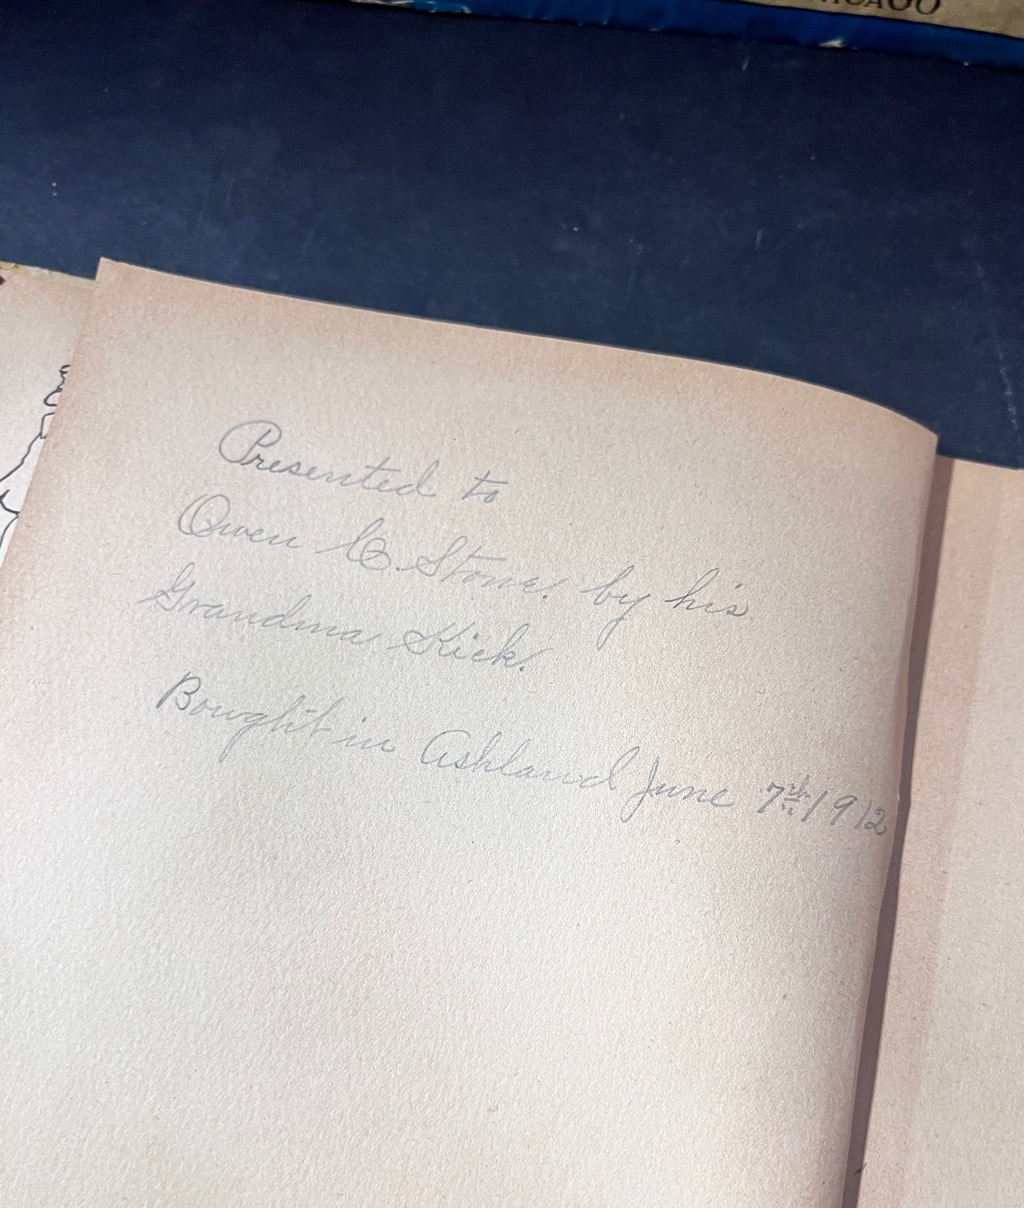 Presented to
Owen C. Stone. by his
Grandma Kick.
Bought in Ashland June 7th 1912